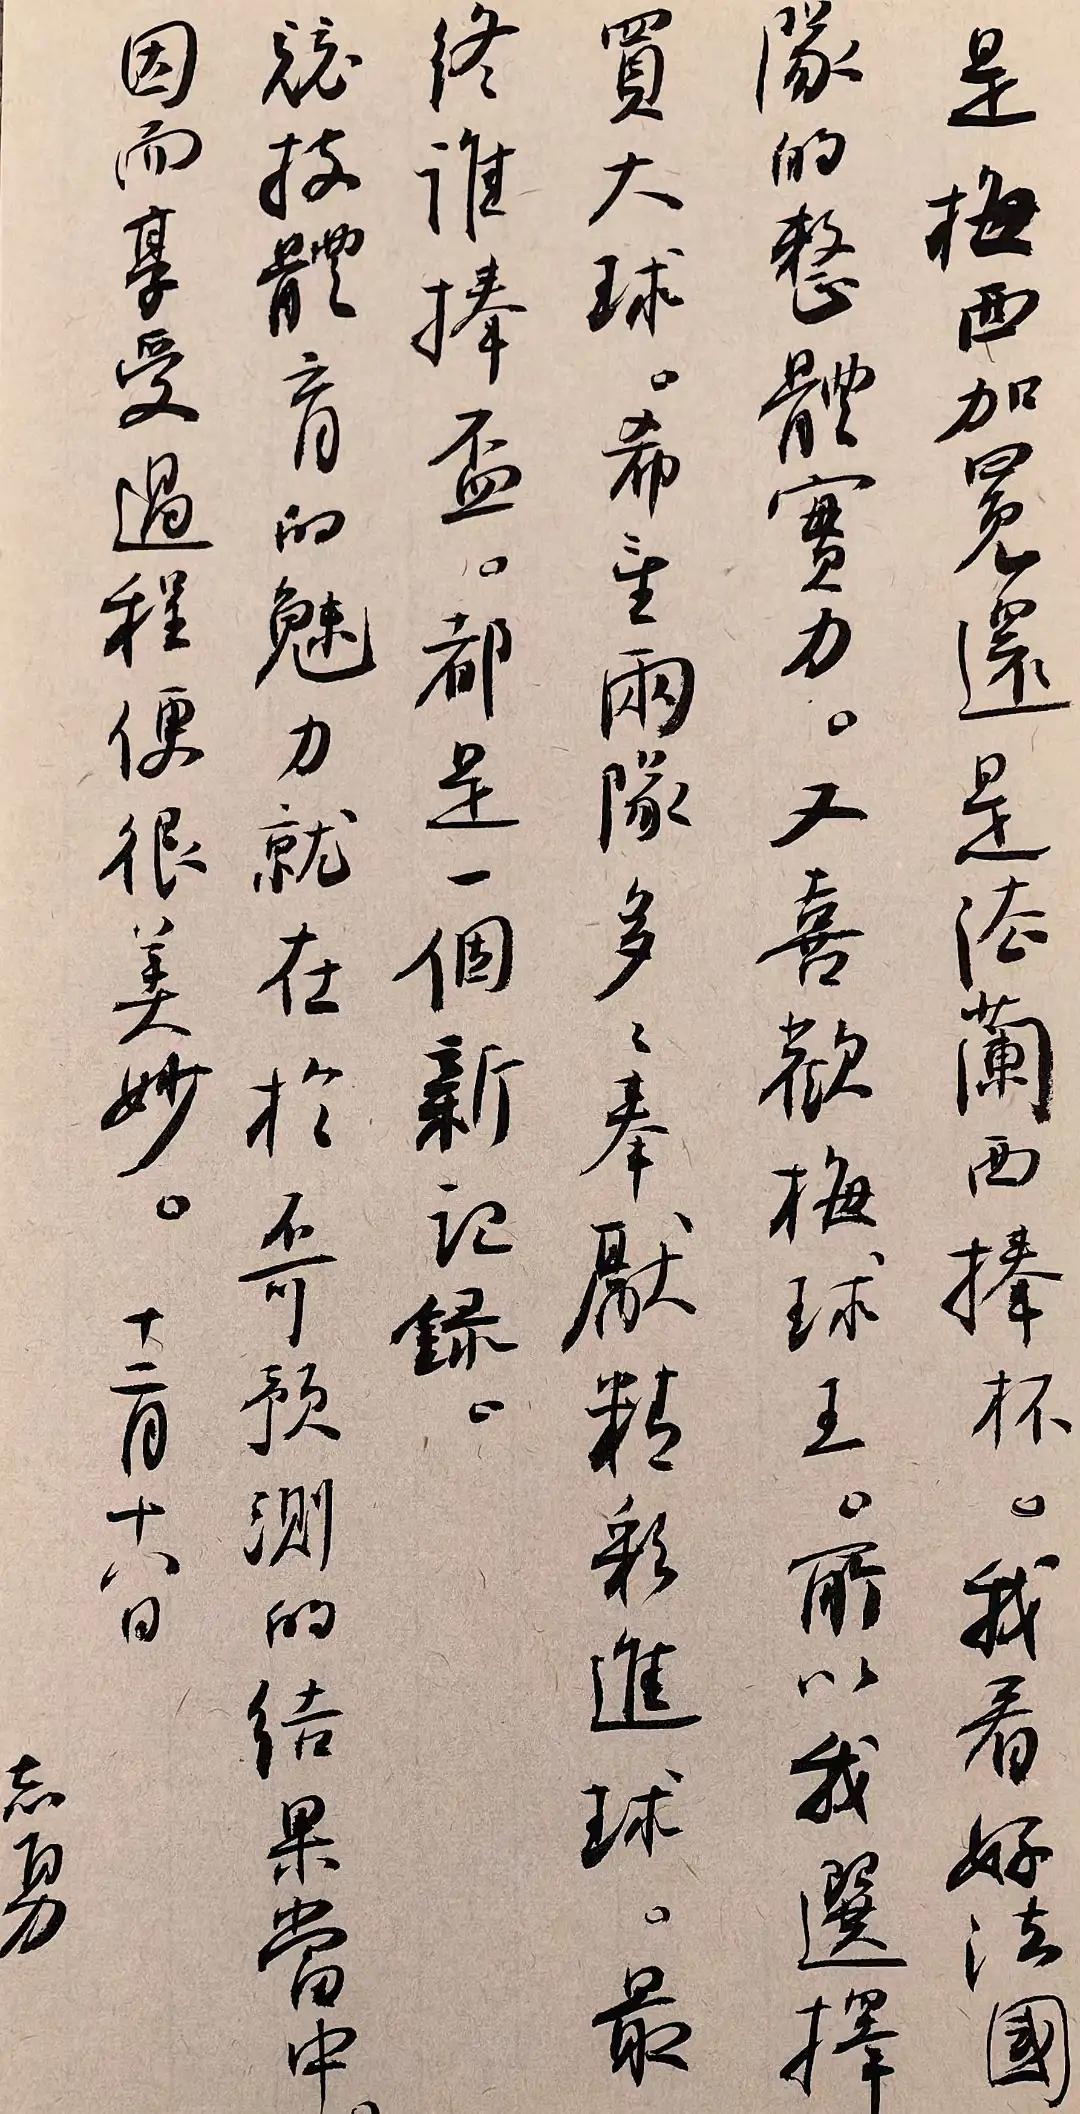 是梅西加冕還是法蘭西捧杯。我看好法國
隊的整體實力。又喜歡梅球王。所以我選擇
買大球。希望兩隊多々奉獻精彩進球。最
終誰捧盃。都是一個新記錄。
競技體育的魅力就在於不可預測的結果當中。
因而享受過程便很美妙。 十二月十六日
志勇